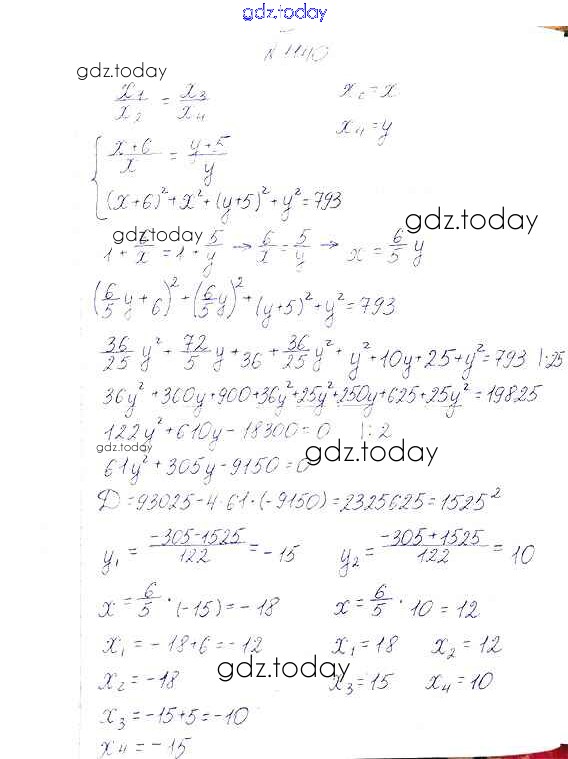 gdz.today
№ 1140
gdz.today
x₁/x₂ = x₃/x₄ x₂ = x
x₄ = y
{ (x+6)/x = (y+5)/y
(x+6)² + x² + (y+5)² + y² = 793
gdz.today
gdz.today
1 + 6/x = 1 + 5/y → 6/x = 5/y → x = 6/5 y
(6/5 y + 6)² + (6/5 y)² + (y+5)² + y² = 793
36/25 y² + 72/5 y + 36 + 36/25 y² + y² + 10y + 25 + y² = 793 |·25
36y² + 360y + 900 + 36y² + 25y² + 250y + 625 + 25y² = 19825
122y² + 610y - 18300 = 0 |:2
gdz.today
gdz.today
61y² + 305y - 9150 = 0
D = 93025 - 4·61·(-9150) = 2325625 = 1525²
y₁ = (-305-1525)/122 = -15 y₂ = (-305+1525)/122 = 10
x = 6/5 · (-15) = -18 x = 6/5 · 10 = 12
x₁ = -18+6 = -12 x₁ = 18 x₂ = 12
gdz.today
gdz.today
x₂ = -18 x₃ = 15 x₄ = 10
x₃ = -15+5 = -10
x₄ = -15